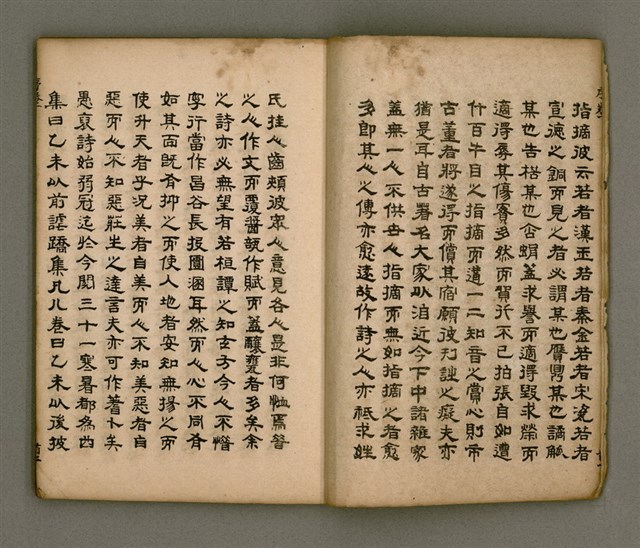 指摘彼云若者漢玉若者秦金若者宋瓷若者
宣德之銅而見之者必謂某也贋鼎某也譎觚
某也苦楛某也呰蝟蓋求譽而適得毀求榮而
適得辱其傷實多然而賢行不已拍張自如遭
什百牛目之指摘而遘一二知音之賞心則市
古董者將遂得而償其宿願彼刃詿之癡夫亦
猶是耳自古署名大家以洎近今下中諸雜家
蓋無一人不供世人指摘而無如指摘之者愈
多即其人之傳亦愈遠故作詩之人亦祇求姓
氏挂人齒頰彼眾人意見各人是非何恤焉昔
之人作文而覆醬瓿作賦而蓋釀甕者多矣余
之詩亦必無望有若桓譚之知玄子今人不憯
寧行當作昌谷長投圂涵耳然而人心不同肴
如其面既肴抑之而使人地者安知無揚之而
使升天者乎況美者自美而人不知美惡者自
惡而人不知惡莊生之達言夫亦可作蓍卜矣
愚裒詩始弱冠迄於今閱三十一寒暑都為四
集曰乙未以前謔蹻集凡八卷曰乙未以後披